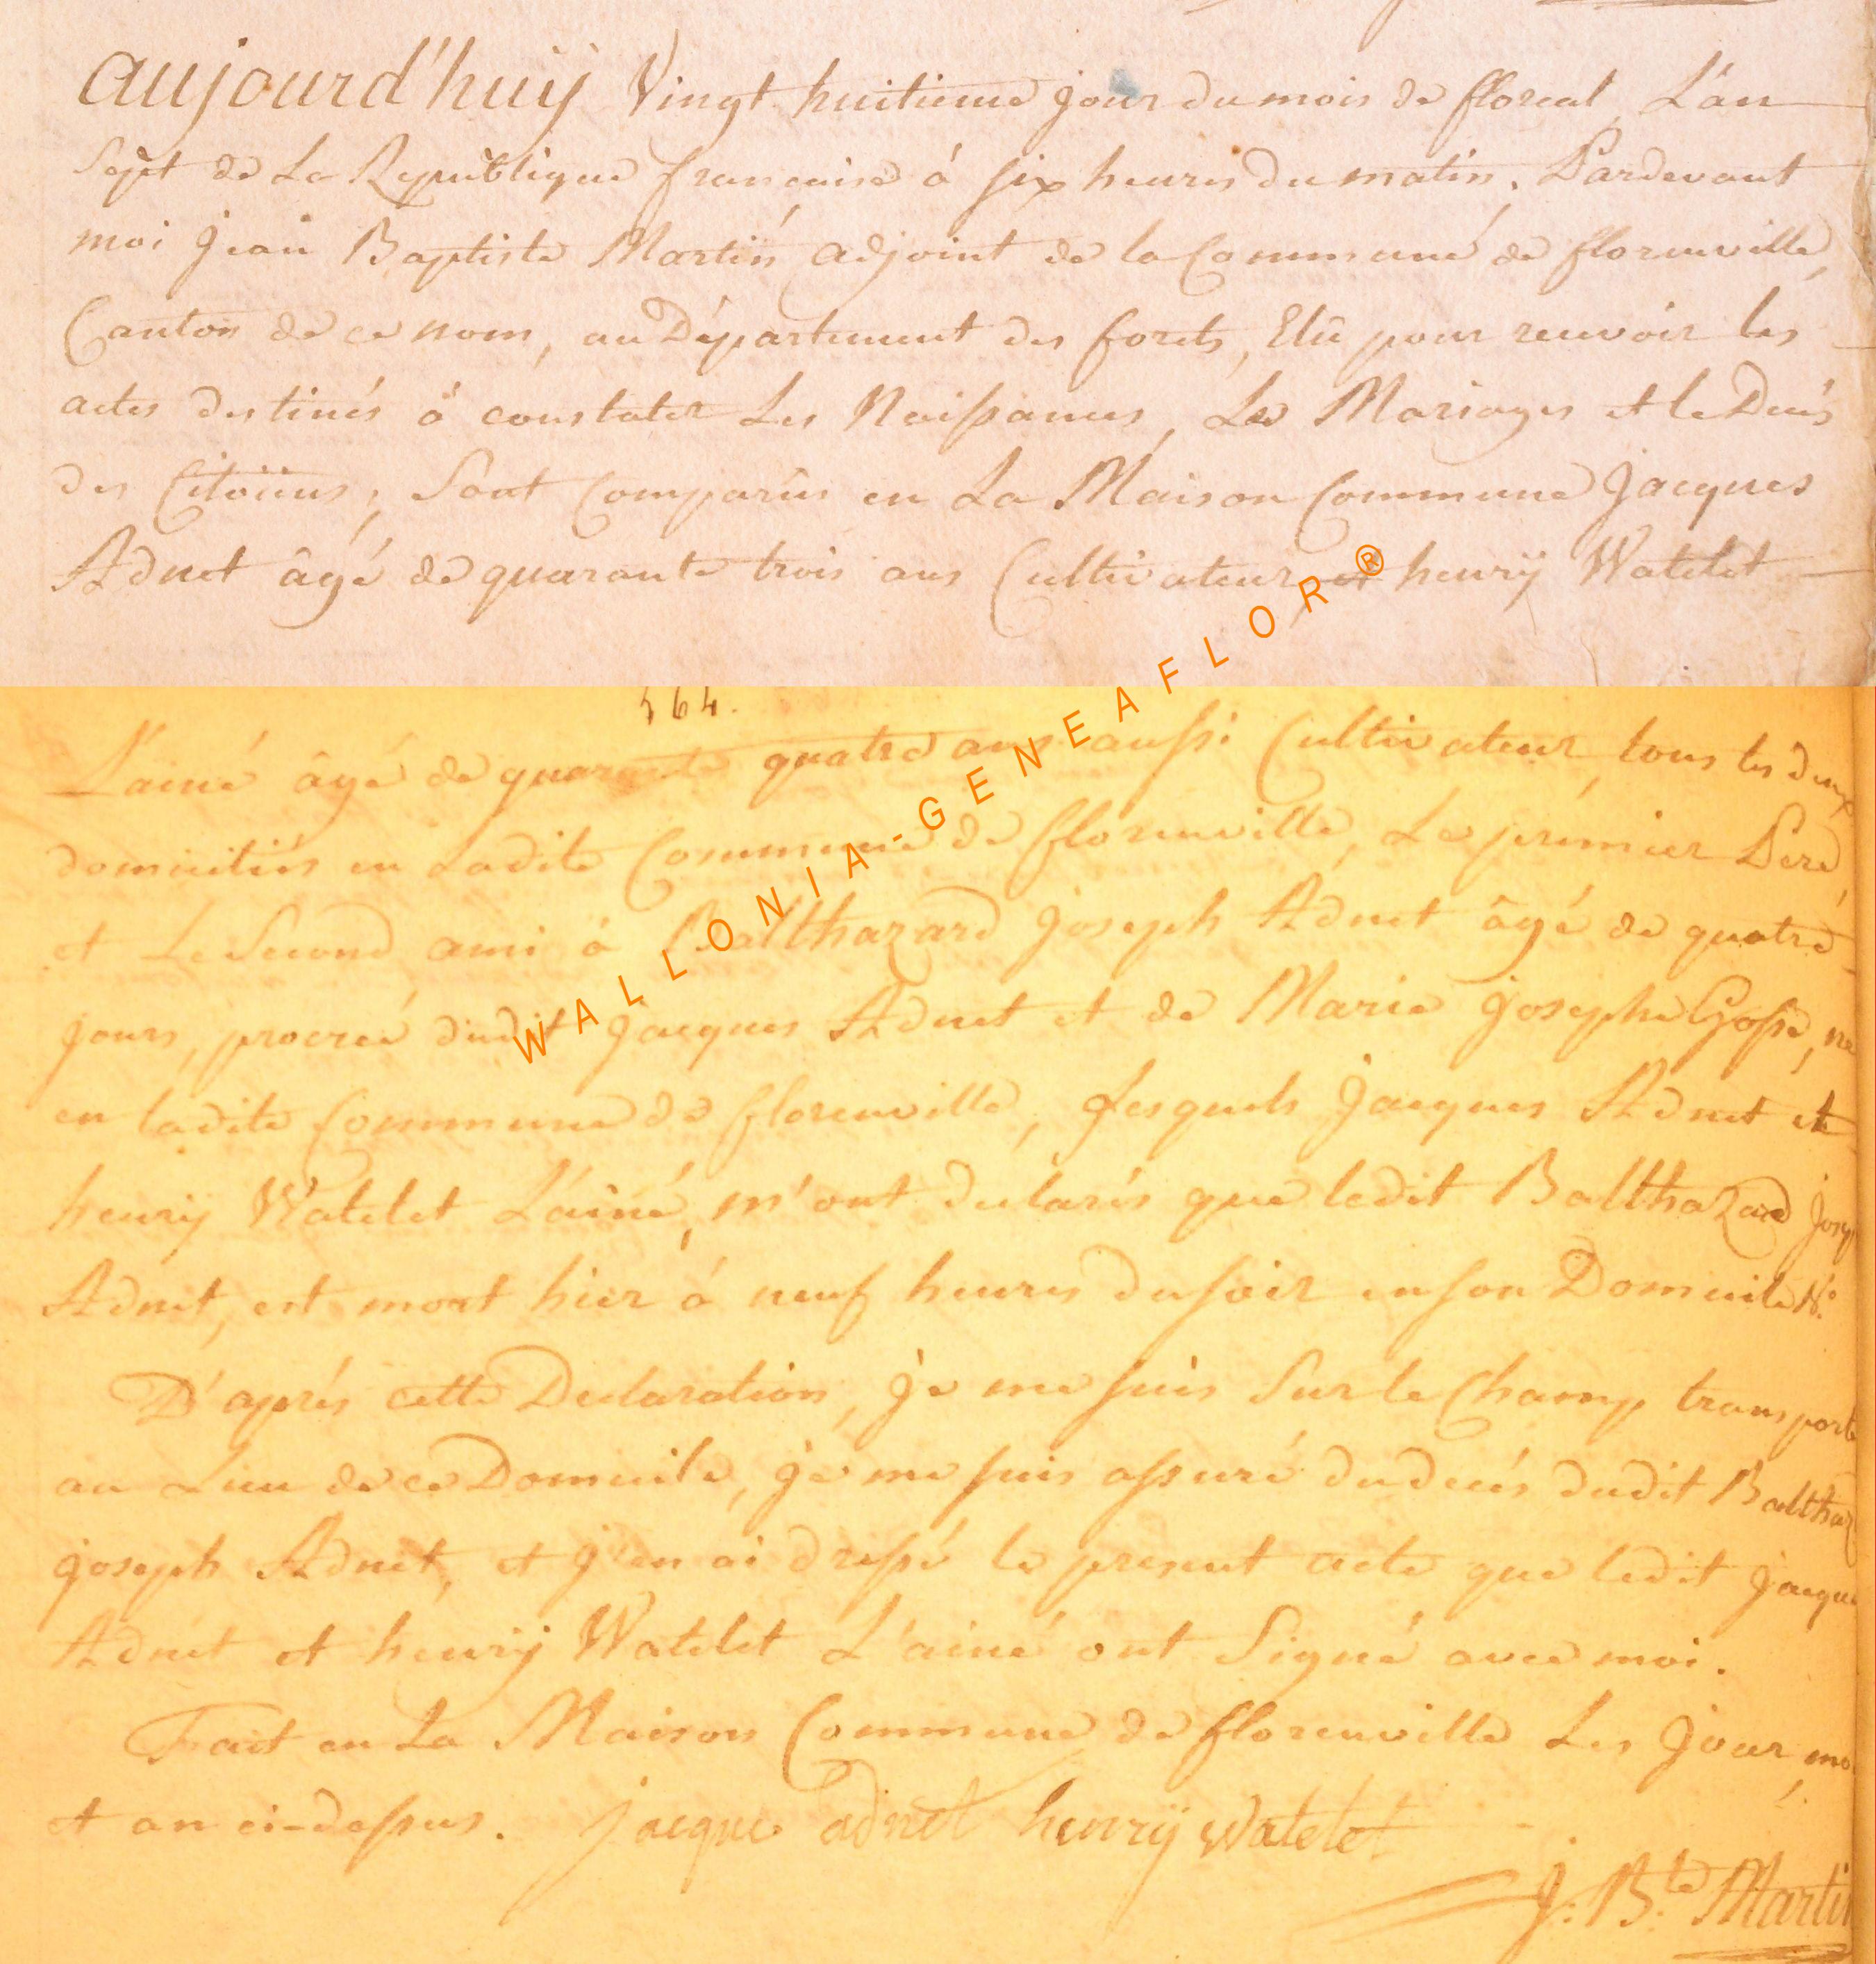 aujourd'huÿ Vingt huitieme jour du mois de floreal, L'an
Sept de La Republique francaise à six heures du matin, Pardevant
moi Jean Baptiste Martin adjoint de la Commune de florenville,
Canton de ce nom, au Département des forets, Elû pour recevoir les
actes destinés à constater Les Naissances, Les Mariages et le Decés
des Citoiiens, Sont Comparûs en La Maison Commune Jacques
Adnet âgé de quarante trois ans Cultivateur et henrÿ Watelet
564.
L'ainé âgé de quarante quatre ans aussi Cultivateur, tous les deux
domiciliés en Ladite Commune de florenville, Le prémier Pere,
et Le Second ami à Balthazard Joseph Adnet âgé de quatre
jours, procreé dudit Jacques Adnet et de Marie Josephe Gosse, né
en ladite Commune de florenville, Lesquels Jacques Adnet et
henrÿ Watelet L'aîné, m'ont declarés que ledit Balthazard Josep
Adnet, est mort hier à neuf heures du soir en son Domicile N.°
D'aprés cette Declaration, je me suis Sur le Champ transporté
au Lieu de ce Domicile, je me suis assuré du decés dudit Balthaz
joseph Adnet, et j'en ai dressé le present acte que ledit Jacques
Adnet et henrÿ Watelet L'ainé ont Signé avec moi.
Fait en La Maison Commune de florenville Les Jour, mo
et an ci-dessus. Jacque adnet henrÿ Watelet
J: B:te Martin
WALLONIA-GENEAFLOR®